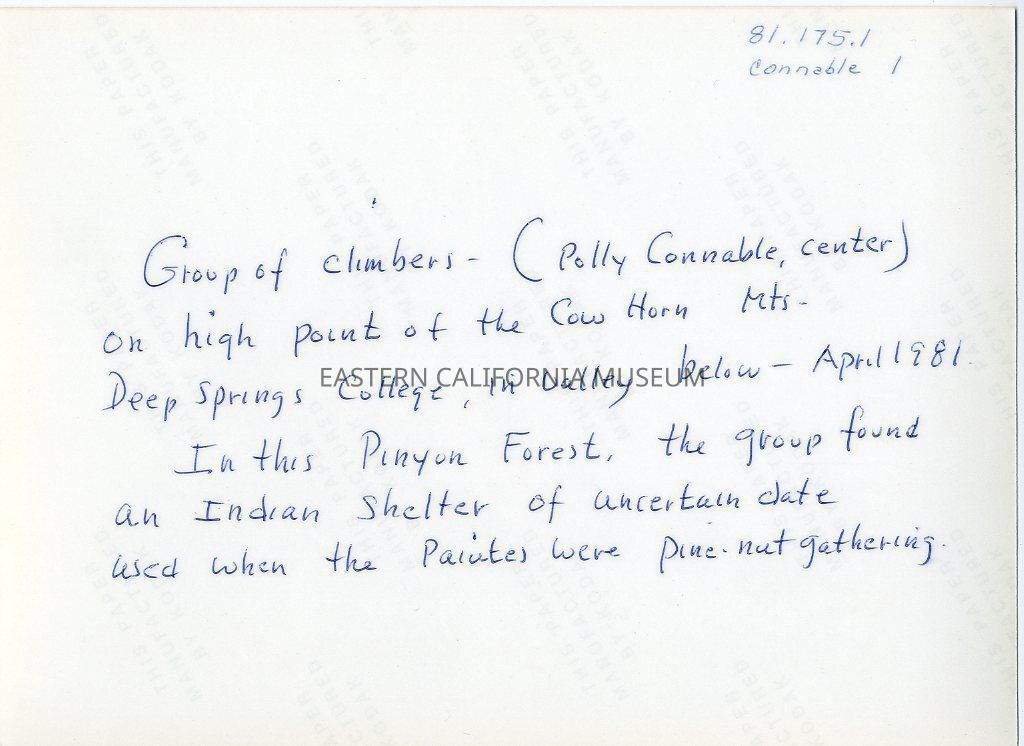 81.175.1
Connable 1
Group of climbers - (Polly Connable, center)
on high point of the Cow Horn Mts -
Deep Springs College, in valley below - April 1981.
EASTERN CALIFORNIA MUSEUM
In this Pinyon Forest, the group found
an Indian Shelter of uncertain date
used when the Paiutes were pine-nut gathering.
THIS PAPER
MANUFACTURED
BY KODAK